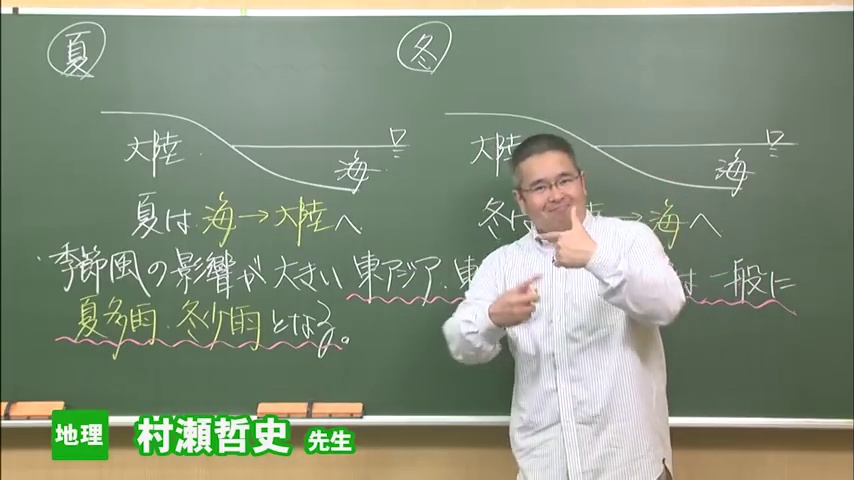 夏
冬
大陸
海
大陸
海
夏は 海→大陸へ
冬は →海へ
・季節風の影響が大きい 東アジア・東 は一般に
夏多雨・冬少雨となる。
地理 村瀬哲史 先生